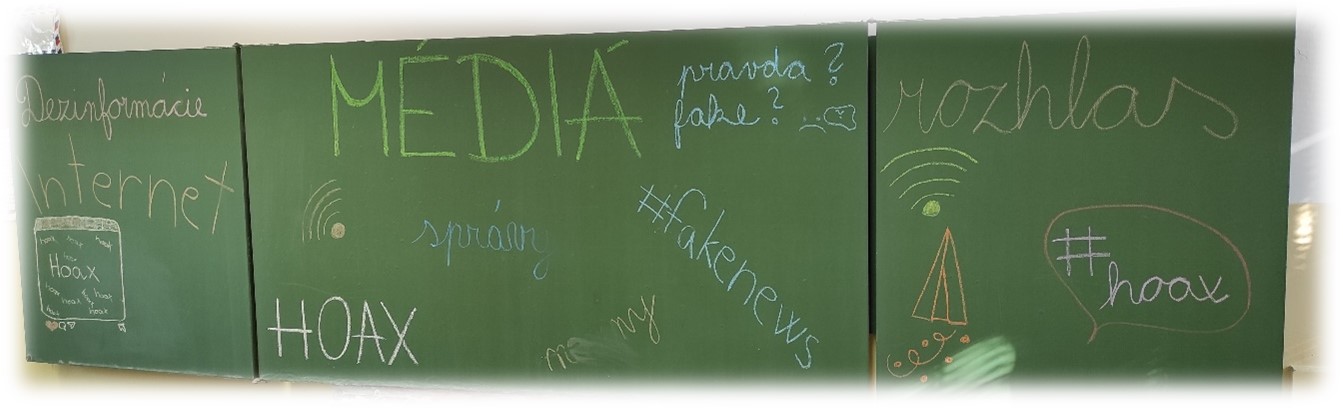 Dezinformácie
Internet
hoax hoax hoax
Hoax
hoax hoax
hoax
MÉDIÁ
pravda?
fake?
správy
#fakenews
HOAX
rozhlas
#hoax